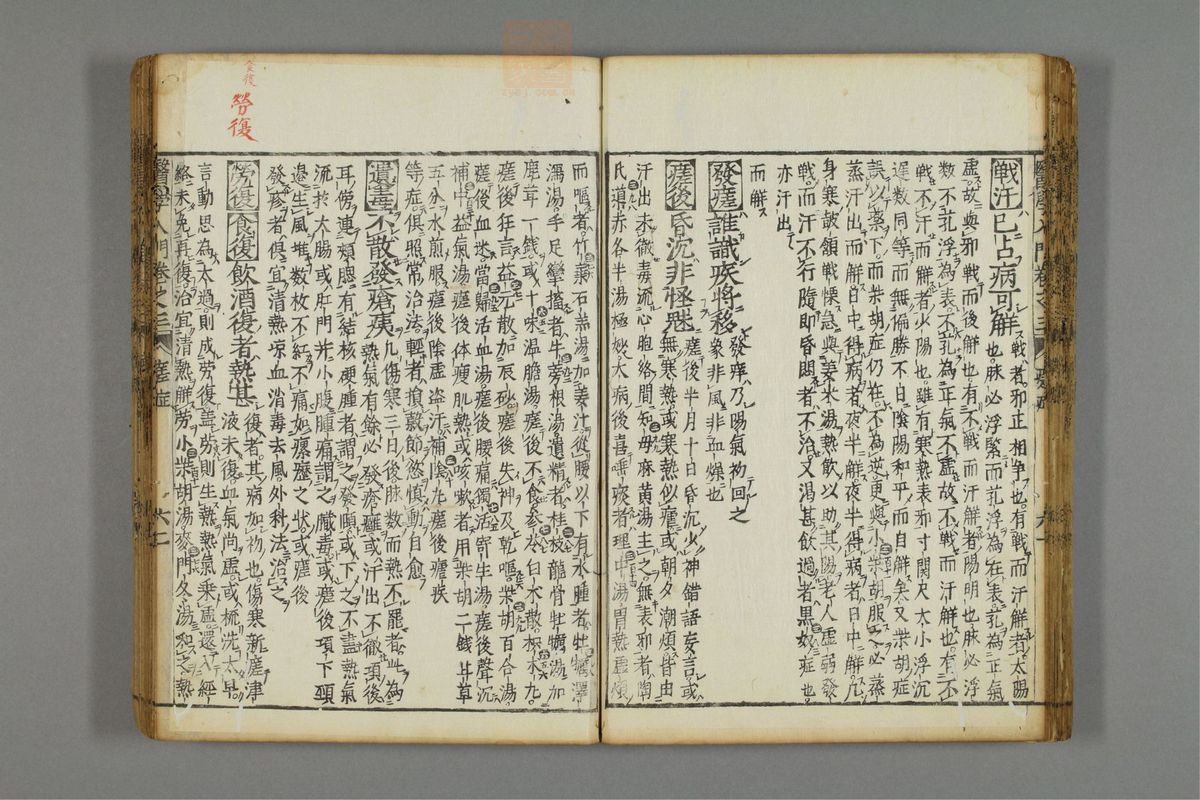 醫學入門卷之三 瘥症 六十一
戰汗已占病可解 戰者邪正相爭也有戰而汗解者太陽
也脉必浮緊而芤浮為在表芤為正氣
虛故與邪戰而後解也有不戰而汗解者陽明也脉必浮
數不芤浮為表不芤為正氣不虛故不戰而汗解也有不
戰不汗而解者少陽也雖有寒熱表邪寸關尺大小浮沉
遲數同等而無偏勝不日陰陽和平而自解矣又柴胡症
誤以藥下而柴胡症仍在不為逆更與小柴胡服之必蒸
蒸汗出而解日中得病者夜半解夜半得病者日中解凡
身寒鼓頷戰慄急與姜米湯熱飲以助其陽老人虛弱發
戰而汗不行隨即昏悶者不治又渴甚飲過者黑奴症也
亦汗出
而解
發痒誰識疾將移 發痒乃陽氣初回之
象非風非血燥也
瘥後昏沉非怪魅 瘥後半月十日昏沉少神錯語妄言或
無寒熱或寒熱似瘧或朝夕潮煩皆由
汗出未徹毒流心胞絡間知母麻黃湯主之無表邪者陶
氏導赤各半湯極妙大病後喜唾痰者理中湯胃熱虛煩
而嘔者竹葉石羔湯加姜汁從腰以下有水腫者牡蠣澤
瀉湯手足攣搐者牛蒡根湯遺精者桂枝龍骨牡蠣湯加
鹿茸一錢或十味温膽湯瘥後不食參苓白术散枳术丸
瘥後狂言益元散加辰砂瘥後失神及乾嘔柴胡百合湯
瘥後血迷當歸活血湯瘥後腰痛獨活寄生湯瘥後聲沉
補中益氣湯瘥後体瘦肌熱或咳嗽者用柴胡二錢甘草
五分水煎服瘥後陰虛盜汗補陰丸瘥後瘧疾
等症俱照常治法輕者損穀節慾慎動自愈
遺毒不散發瘡痍 凡傷寒三日後脉數而熱不罷者此為
熱氣有餘必發瘡癰或汗出不徹項後
耳傍連頰腮有結核硬腫者謂之發頤或下之不盡熱氣
流於大腸或肛門并小腹腫痛謂之臟毒或瘥後項下頸
邊生風堆數枚不紅不痛如瘰癧之狀或瘥後
發疹者俱宜清熱凉血消毒去風外科法治之
勞復食復飲酒復者熱甚 復者其病如初也傷寒新瘥津
液未復血氣尚虛或梳洗太早
言動思為太過則成勞復蓋勞則生熱熱氣乘虛還入經
絡未免再復治宜清熱解勞小柴胡湯麥門冬湯和之熱
醫學入門卷之三 瘥症 六十二
食復
勞復